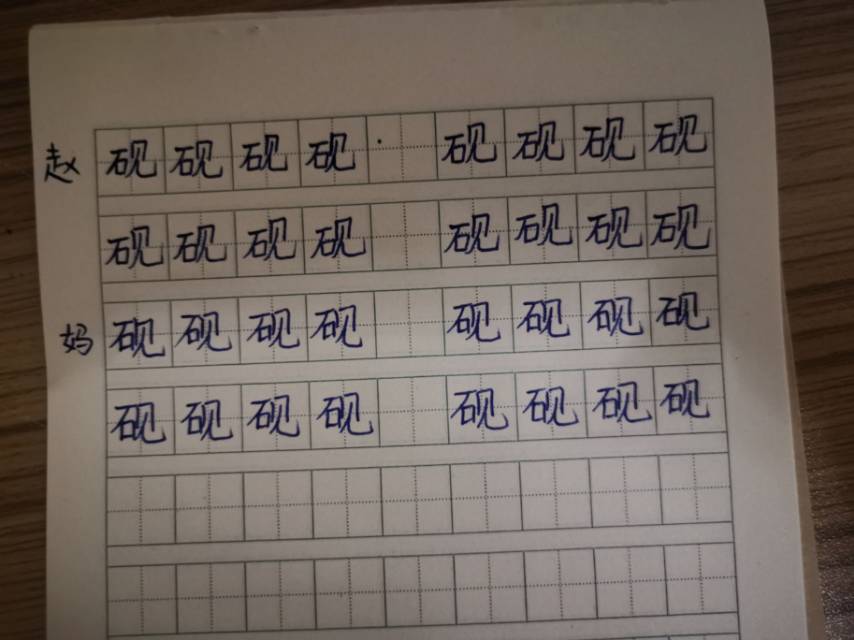 赵 砚 砚 砚 砚 砚 砚 砚 砚
砚 砚 砚 砚 砚 砚 砚 砚
妈 砚 砚 砚 砚 砚 砚 砚 砚
砚 砚 砚 砚 砚 砚 砚 砚